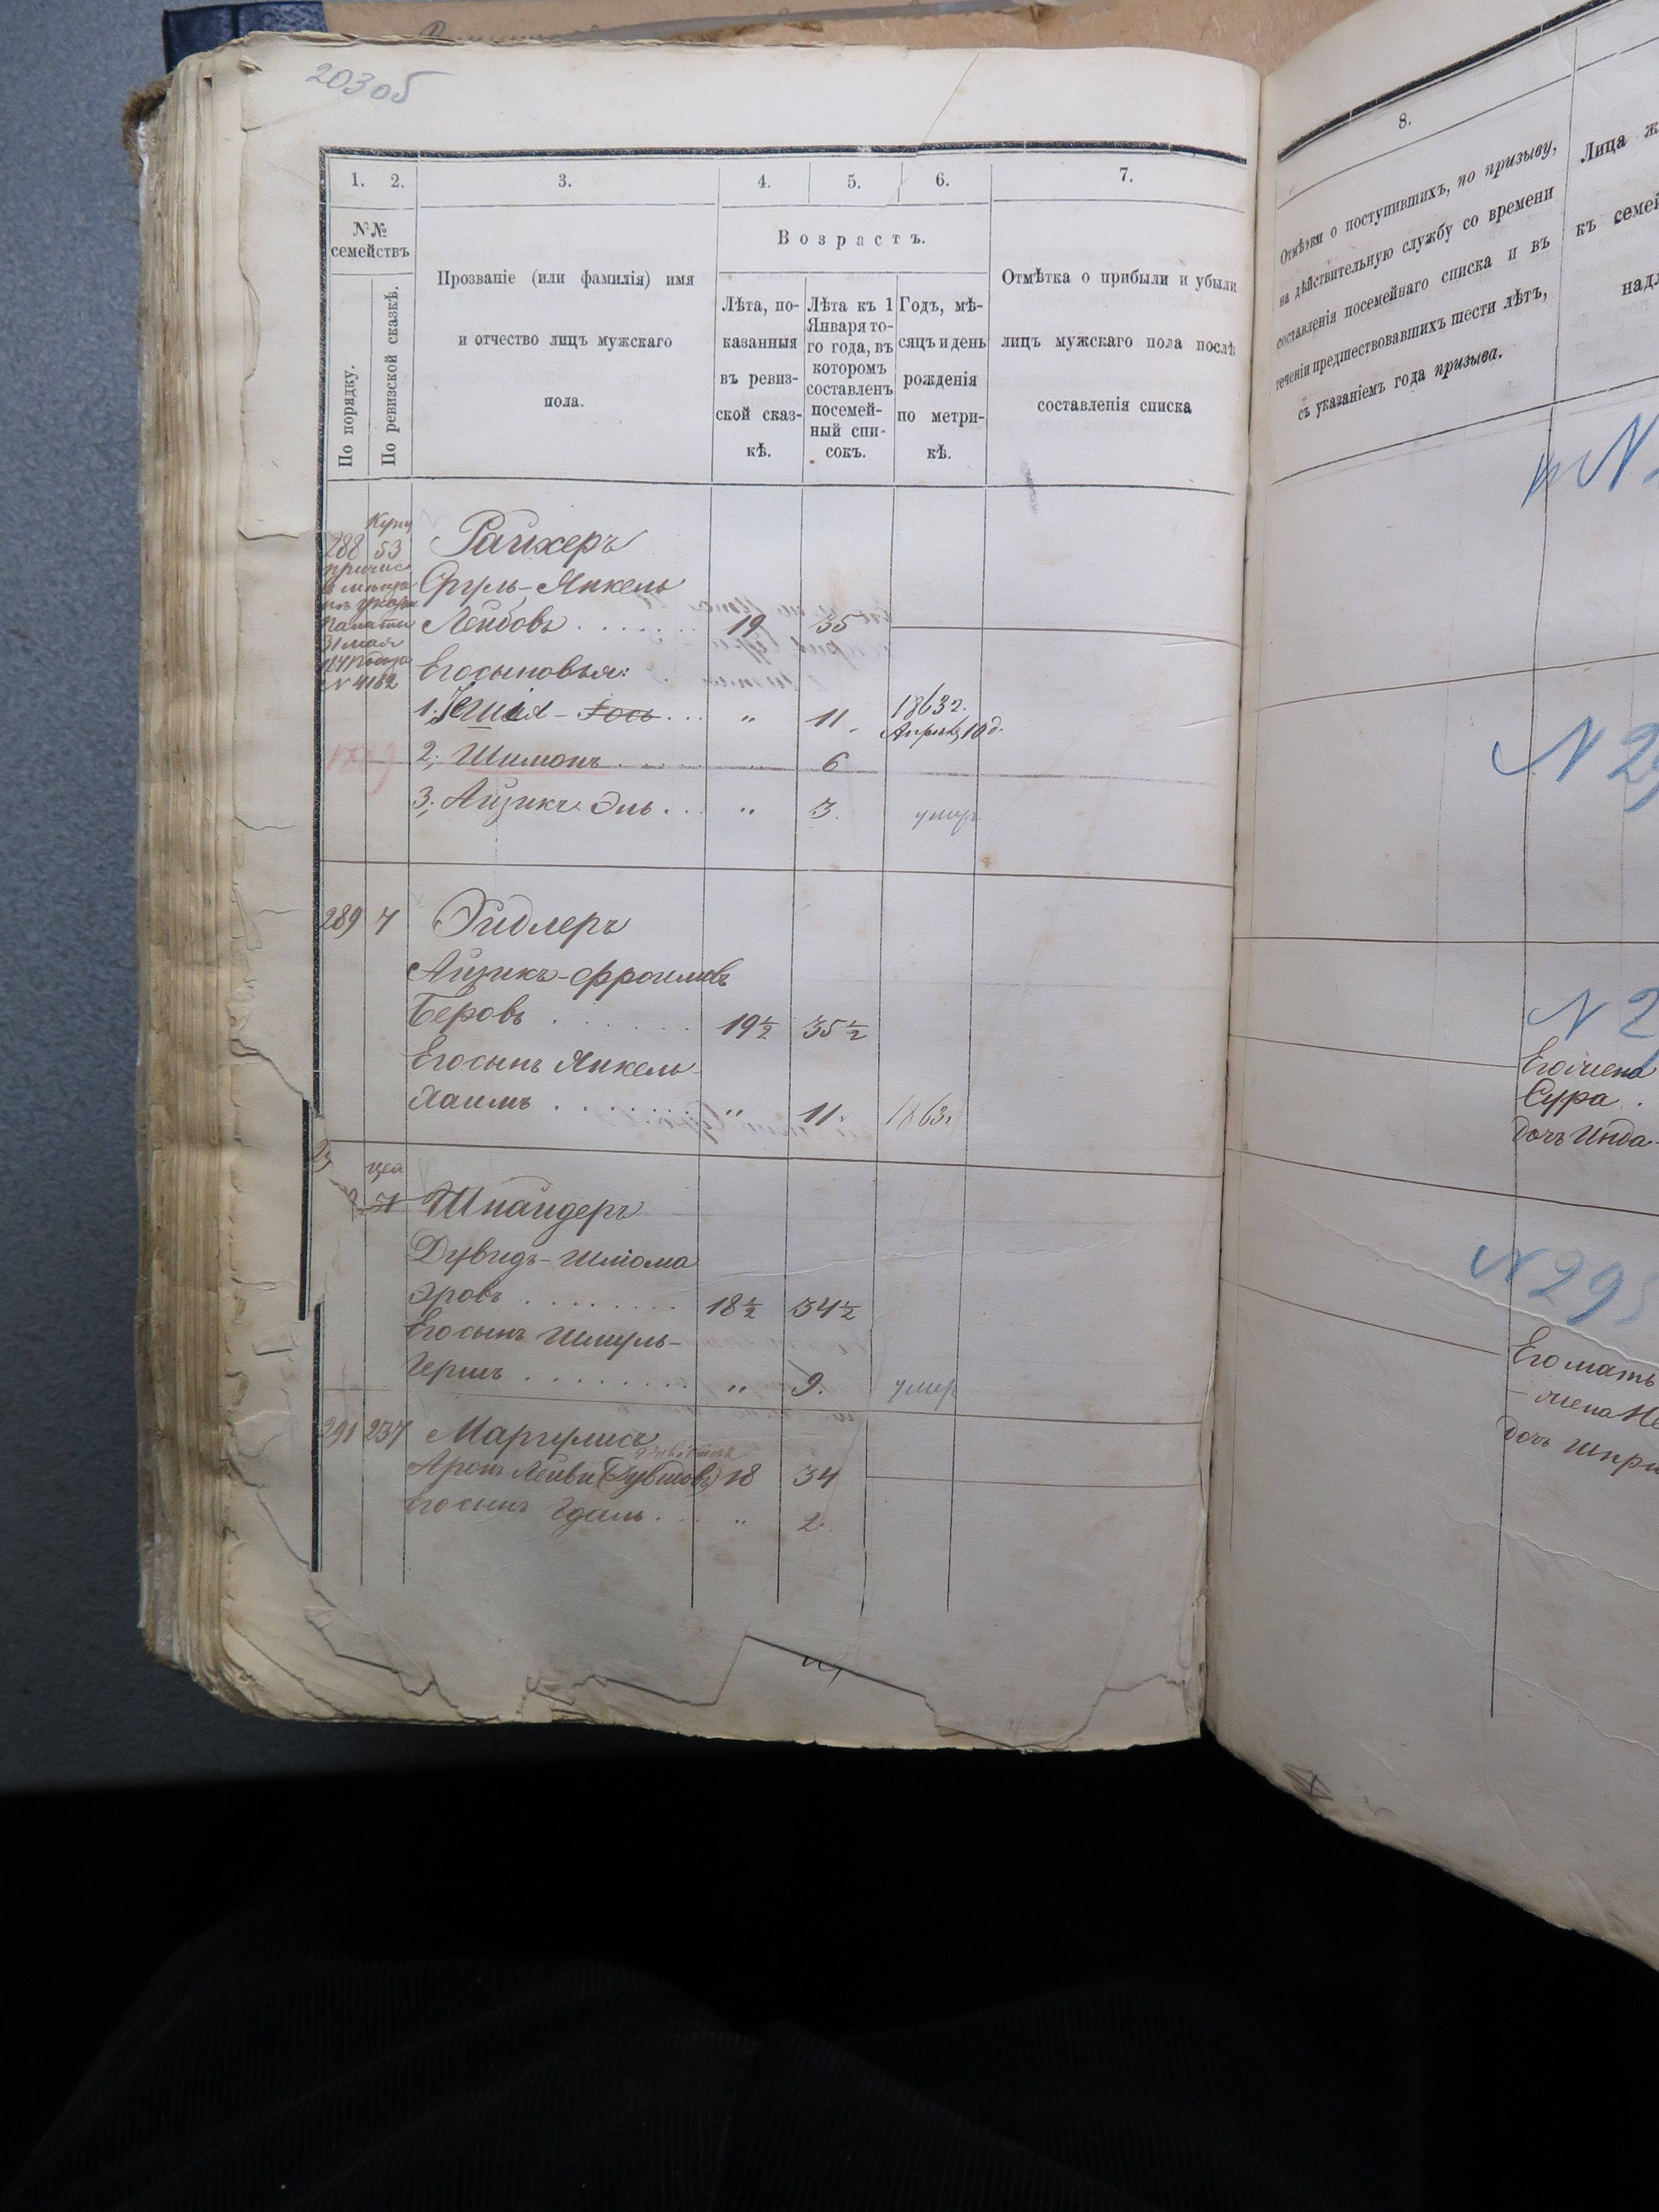 203 об
1. 2. 3. 4. 5. 6. 7.
№№ семействъ
По порядку.
По ревизской сказкѣ.
Прозваніе (или фамилія) имя
и отчество лицъ мужскаго
пола.
Возрастъ.
Лѣта, по-
казанныя
въ ревиз-
ской сказ-
кѣ.
Лѣта къ 1
Января то-
го года, въ
которомъ
составленъ
посемей-
ный спи-
сокъ.
Годъ, мѣ-
сяцъ и день
рожденія
по метри-
кѣ.
Отмѣтка о прибыли и убыли
лицъ мужскаго пола послѣ
составленія списка
Купц
288 53 Райхеръ
Сруль-Янкель
Лейбовъ . . . . . . 19 35
31 мая
№ 4162
Его сыновья:
1. . . . " 11 1863 г.
Апрѣля 10 д.
2; Шимонъ . . . . " 6
3; Айзикъ Эль . . . " 3. умеръ
289 7 Эйдлеръ
Айзикъ-Фроимовъ
Беровъ . . . . . . 19½ 35½
Его сынъ Янкель-
Хаимъ . . . . . . " 11. 1863 г.
Шпайдеръ
Дувидъ-Шлiома
Эровъ . . . . . . . 18½ 34½
Его сынъ Шмуль-
Гершъ . . . . . . . " 9. умер
291 237 Маргулисъ
Аронъ Лейви (Дувидовъ) 18 34
Его сынъ Гдаль . . . " 2.
8.
Отмѣтки о поступившихъ, по призыву,
на дѣйствительную службу со времени
составленія посемейнаго списка и въ
теченіи предшествовавшихъ шести лѣтъ,
съ указаніемъ года призыва.
Лица
къ семей
надл
№
№ 29
№ 2
Его жена
Сура .
Дочь Инда-
№ 295
Его мать
- жена
Дочь Шпри